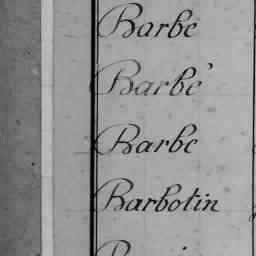 Barbe
Barbé
Barbe
Barbotin